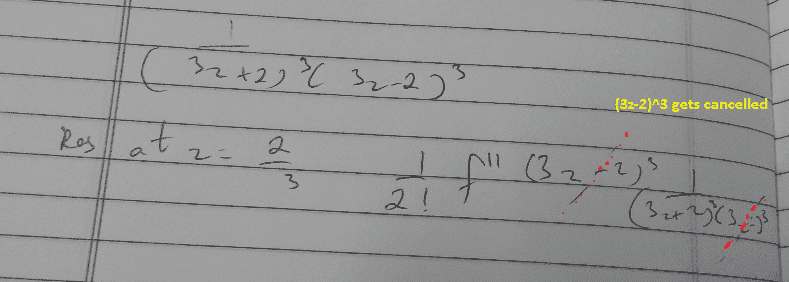 1
(3z+2)^3(3z-2)^3
(3z-2)^3 gets cancelled
Res at z = 2/3 1/2! f'' (3z-2)^3 1/(3z+2)^3(3z-)^3